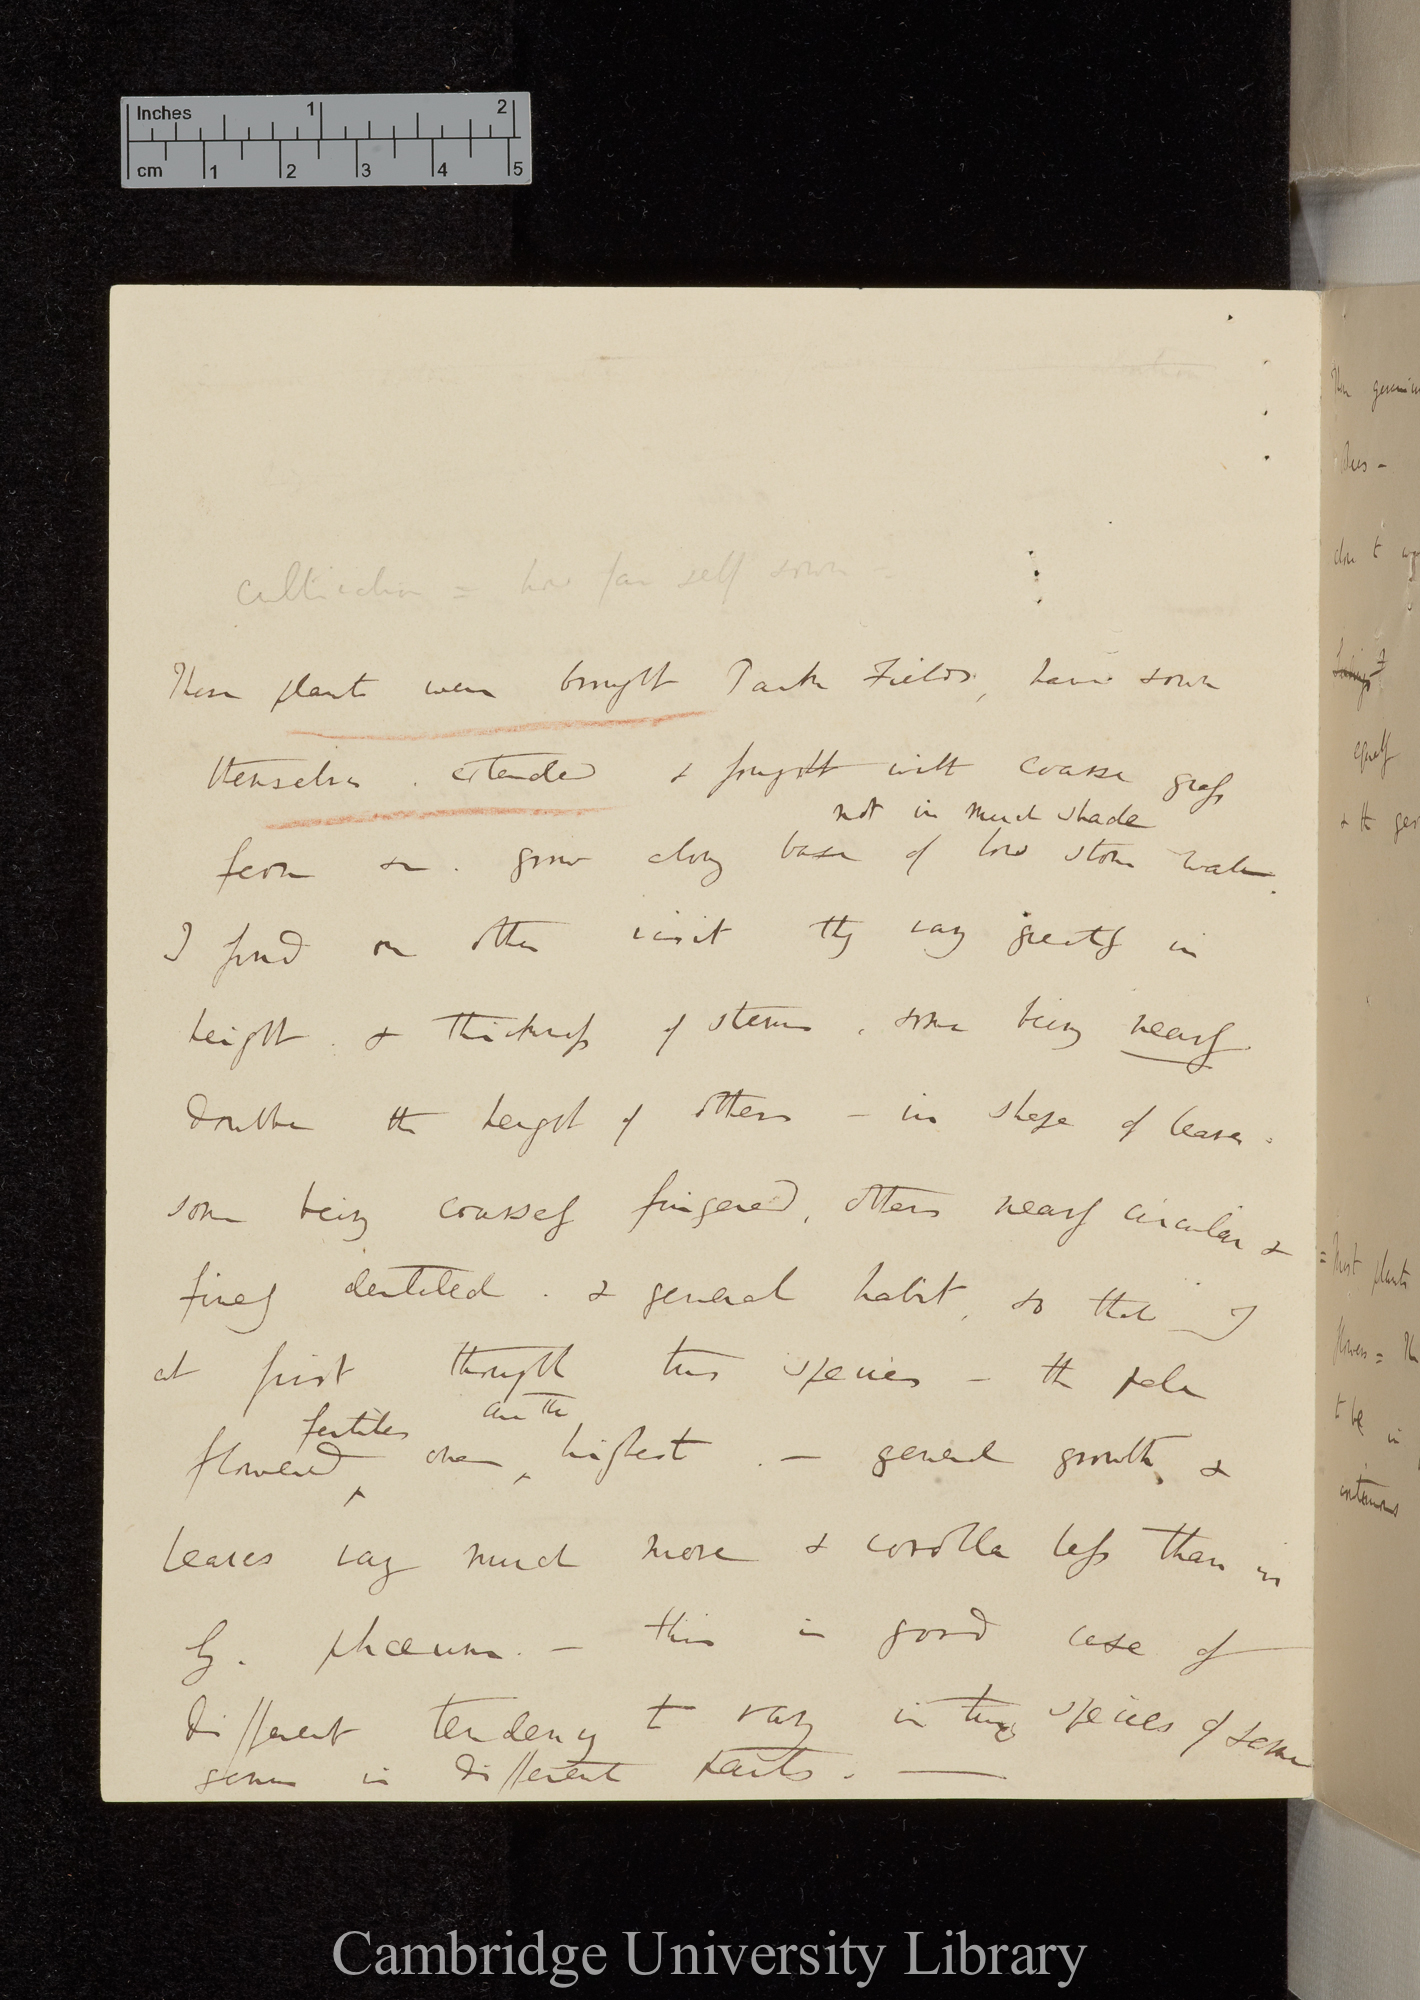 Inches 1 2
cm 1 2 3 4 5
cultivation = how far self sown =
These plants were brought Park Fields, have sown
themselves. extended & fought with coarse grass
not in much shade
fern &c. grow along base of low stone walls.
I find on other visit they vary greatly in
height. & thickness of stems, some being nearly
double the height of others — in shape of leaves.
some being coarsely fingered, others nearly circular &
finely dentated. & general habit, so that I
at first thought two species — the pale
fertiles are the
flowered, ones, highest. — general growth, &
leaves vary much more & corolla less than in
G. phæum. — this is good case of
different tendency to vary in two species of same
genus in different parts. —
Most plants
flowers =
to be in
Cambridge University Library